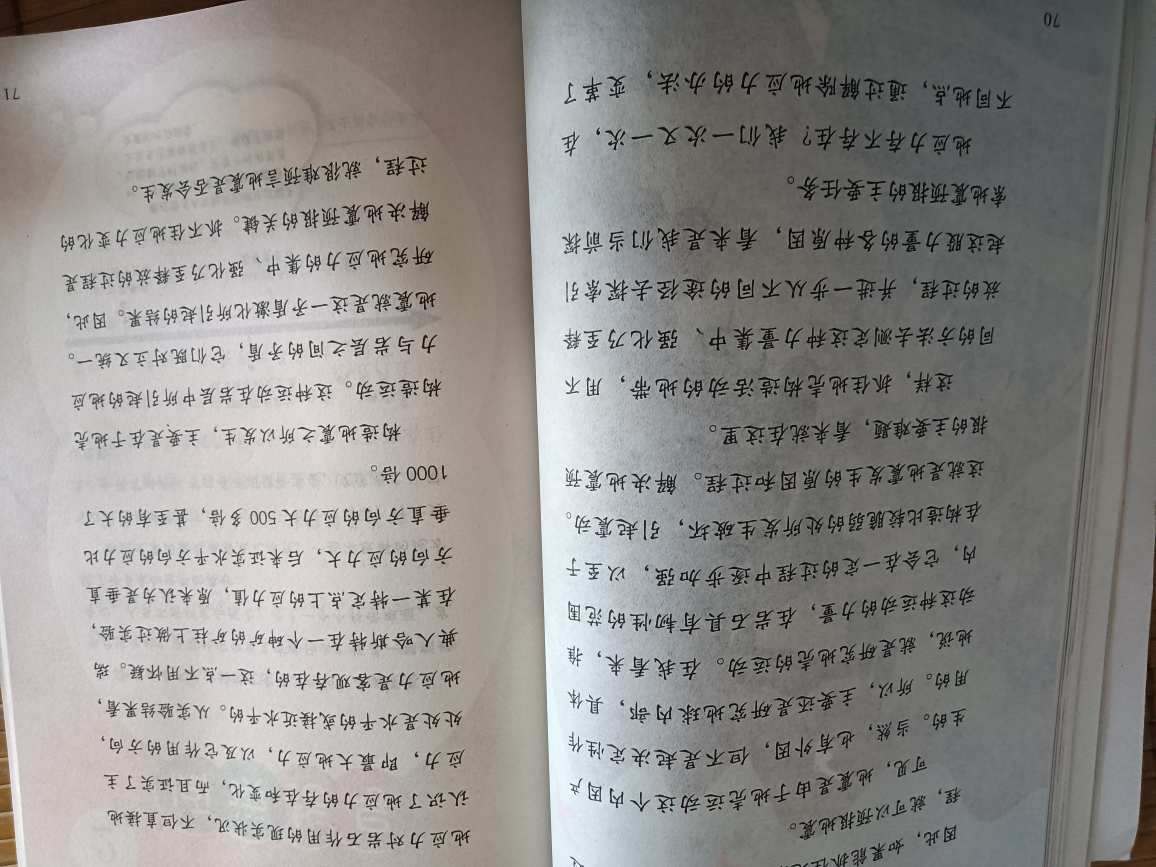 因此，如果能抓住
程，就可以预报地震。
可见，地震是由于地壳运动这个内因产
生的。当然，也有外因，但不是起决定性作
用的。所以，主要还是研究地球内部，具体
地说，就是研究地壳的运动。在我看来，推
动这种运动的力量，在岩石具有韧性的范围
内，它会在一定的过程中逐步加强，以至于
在构造比较脆弱的处所发生破坏，引起震动。
这就是地震发生的原因和过程。解决地震预
报的主要难题，看来就在这里。
这样，抓住地壳构造活动的地带，用不
同的方法去测定这种力量集中、强化乃至释
放的过程，并进一步从不同的途径去探索引
起这股力量的各种原因，看来是我们当前探
索地震预报的主要任务。
地应力存不存在？我们一次又一次，在
不同地点，通过解除地应力的办法，变革了
70
地应力对岩石作用的现实状况，不但直接地
认识了地应力的存在和变化，而且证实了主
应力，即最大地应力，以及它作用的方向，
处处是水平的或接近水平的。从实验结果看，
地应力是客观存在的，这一点不用怀疑。瑞
典人哈斯特在一个砷矿的矿柱上做过实验，
在某一特定点上的应力值，原来认为是垂直
方向的应力大，后来证实水平方向的应力比
垂直方向的应力大500多倍，甚至有的大了
1000倍。
构造地震之所以发生，主要是在于地壳
构造运动。这种运动在岩层中所引起的地应
力与岩层之间的矛盾，它们既对立又统一。
地震就是这一矛盾激化所引起的结果。因此，
研究地应力的集中、强化乃至释放的过程是
解决地震预报的关键。抓不住地应力变化的
过程，就很难预言地震是否会发生。
71